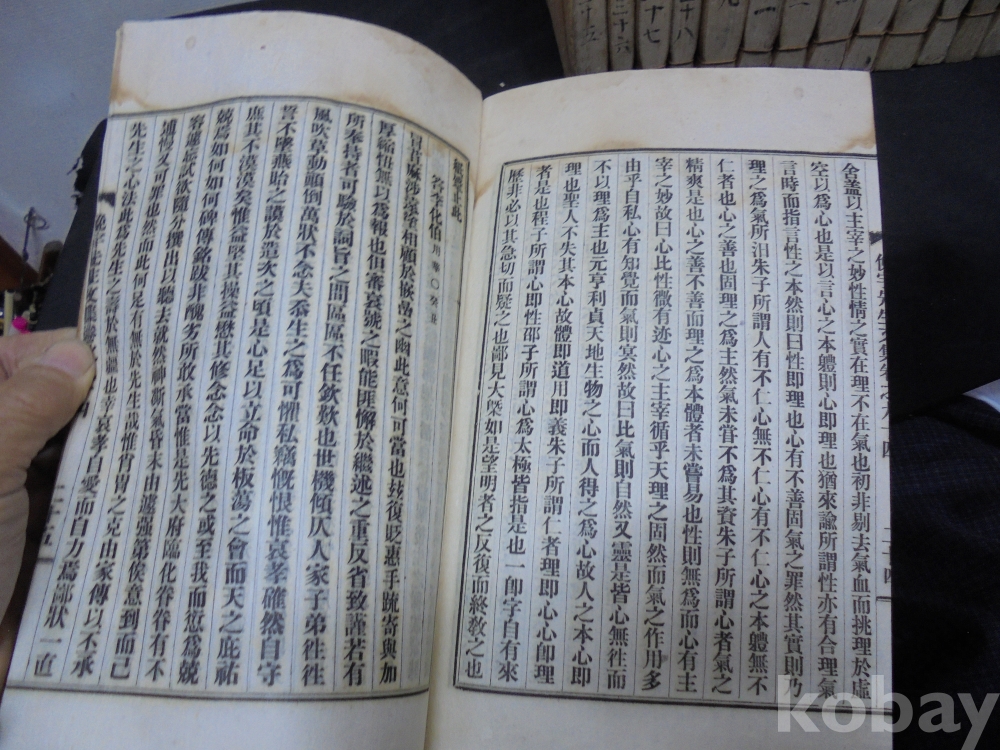 舍蓋以主宰之妙性情之實在理不在氣也初非剔去氣血而挑理於虛
空以爲心也是以言心之本體則心即理也猶來諭所謂性亦有合理氣
言時而指言性之本然則曰性即理也心有不善固氣之罪然其實則乃
理之爲氣所汨朱子所謂人有不仁心無不仁心有不仁心之本體無不
仁者也心之善也固理之爲主然氣未甞不爲其資朱子所謂心者氣之
精爽是也心之善不善而理之爲本體者未嘗易也性則無爲而心有主
宰之妙故曰心比性微有迹心之主宰循乎天理之固然而氣之作用多
由乎自私心有知覺而氣則冥然故曰比氣則自然又靈是皆心無徃而
不以理爲主也元亨利貞天地生物之心而人得之爲心故人之本心即
理也聖人不失其本心故體即道用即義朱子所謂仁者理即心心即理
者是也程子所謂心即性邵子所謂心爲太極皆指是也一即字自有來
歷非必以其急切而疑之也鄙見大槩如是望明者之反復而終敎之也
二十四
答李化伯
冒昔麻沙寂寞相顧於嵌嵒之幽此意何可當也玆復貶惠手疏寄與加
厚縮恧無以爲報也但審哀號之暇能匪懈於繼述之重反省致謹若有
所奉持者可驗於詞旨之間區區不任欽歎也世機傾仄人家子弟徃徃
風吹草動顚倒萬狀不念夫忝生之爲可懼私竊慨恨惟哀孝確然自守
誓不墜燕貽之謨於造次之頃是心足以立命於板蕩之會而天之庇祐
庶其不漠漠矣惟益堅其操益懋其修念念以先德之或至我而愆爲兢
兢爲如何如何碑傳銘跋非醜劣所敢承當惟是先大府臨化眷眷有不
容遽拡試欲隨分撰出以聽去就然神凘氣昏末由遽强第俟意到而已
逋慢又可罪也然而此何足有無於先生哉惟胄胄之克由家傳以不承
先生之心法此爲先生之壽於無疆也幸哀孝自愛而自力焉鄙狀一直
二十五
kobay